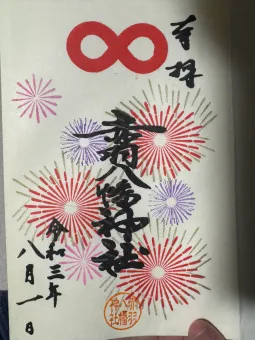 奉拝
赤羽八幡神社
令和三年
八月一日